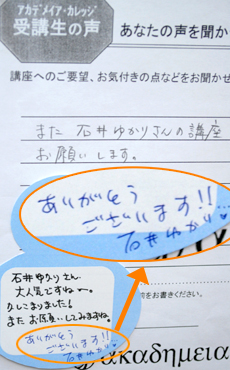 アカデメイア・カレッジ
受講生の声
あなたの声を聞か
講座へのご要望、お気付きの点などをお聞かせ
また 石井ゆかりさんの講座
お願いします。
ありがとう
ございます!!
石井ゆかり
石井ゆかりさん
大人気ですねー。
またお願いしてみますね。
ありがとう
ございます!!
石井ゆかり
をお書きください。
akademeia